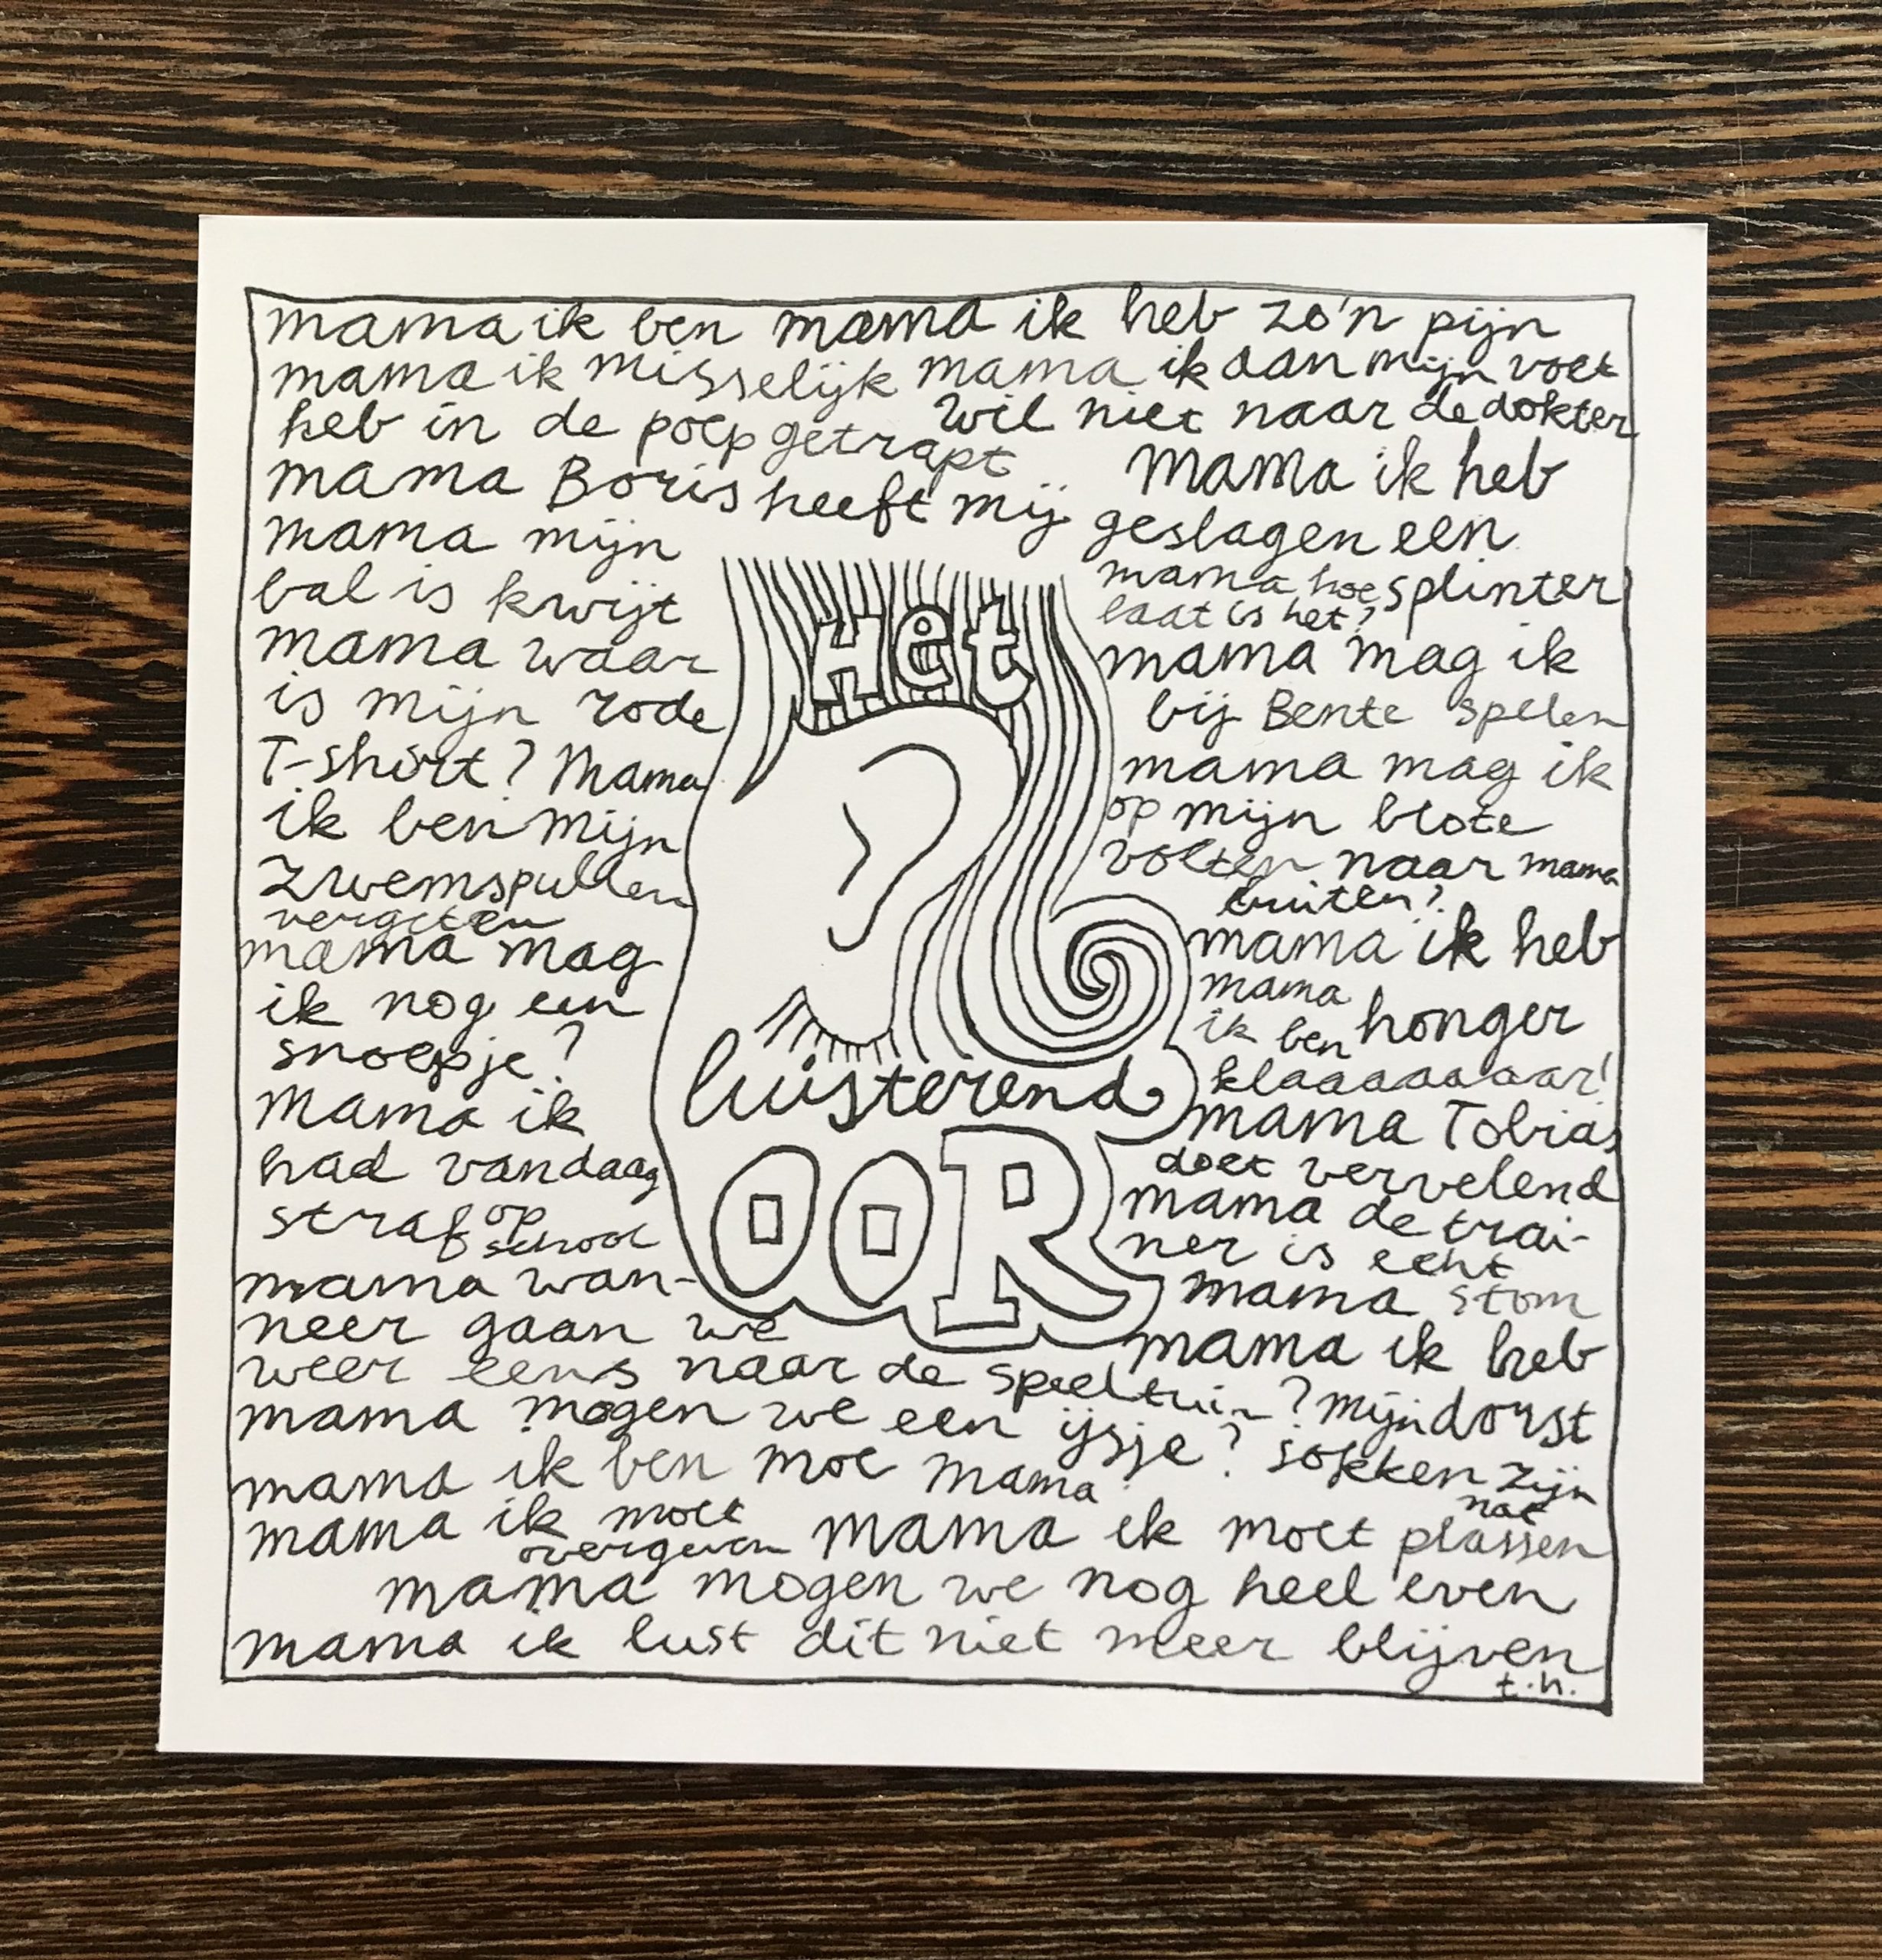 mama ik ben mama ik heb zo'n pijn
mama ik misselijk mama ik aan mijn voet
heb in de poep getrapt wil niet naar de dokter
mama Boris heeft mij geslagen
Mama ik heb
een
splinter
mama mijn
bal is kwijt
mama waar
is mijn rode
T-shirt? Mama
ik ben mijn
zwemspullen
vergeten
mama mag
ik nog een
snoepje?
Mama ik
had vandaag
straf op
school
mama wan-
neer gaan we
weer eens naar de speeltuin?
mama mogen we een ijsje?
mama ik ben moe
Het
luisterend
OOR
mama hoe
laat is het?
mama mag ik
bij Bente spelen
mama mag ik
op mijn blote
voeten naar
buiten?
mama
mama ik heb
honger
mama
ik ben
klaaaaaaar!
mama Tobias
doet vervelend
mama de trai-
ner is echt
stom
mama
mama ik heb
dorst
mama
mijn
sokken zijn
nat
mama ik moet
overgeven
mama ik moet plassen
mama mogen we nog heel even
blijven
mama ik lust dit niet meer
t.h.